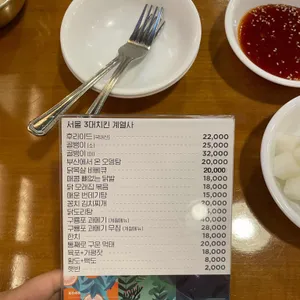 서울 3대치킨 계열사
후라이드(국내산) 22,000
골뱅이(소) 25,000
골뱅이(대) 32,000
부산에서 온 오뎅탕 20,000
닭목살 바베큐 20,000
매콤 뼈없는 닭발 18,000
닭 모래집 볶음 18,000
매운 번데기탕 15,000
꽁치 김치찌개 10,000
닭도리탕 1,000
구룡포 과메기(계절메뉴) 20,000
구룡포 과메기 무침(계절메뉴) 28,000
한치 18,000
통째로 구운 먹태 20,000
육포+가문잣 18,000
황도+백도 8,000
햇반 2,000